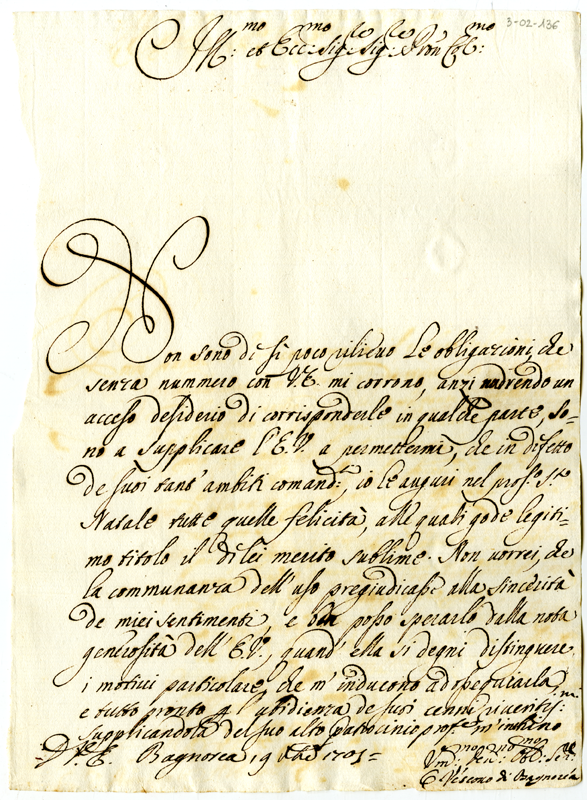 3-02-136
Ill:mo et Ecc:mo Sig:re Sig:re Pron Col:mo
Non sono di sì poco rilievo le obligazioni, che
senza nummero con V.E. mi corrono, anzi nudrendo un
acceso desiderio di corrisponderle in qualche parte, so=
no a supplicare l'E.V. a permettermi, che in difetto
de suoi tant'ambiti comand:i, io le auguri nel pros:o S:to
Natale tutte quelle felicità, alle quali gode legiti=
mo titolo il di lei merito sublime. Non vorrei, che
la communanza dell'uso pregiudicasse alla sincerità
de miei sentimenti, e ben posso sperarlo dalla nota
generosità dell'E.V., quand'ella si degni distinguere
i motivi particolare, che m'inducono ad ossequiarla
e tutto pronto all'ubidienza de suoi cenni riverentis:mi
supplicandola del suo alto patrocinio m'inchino
D.V.E. Bagnorea 19 Xbre 1701=
Um:mo Den:mo Obl:mo Se:re
C. Vescovo di Bagnorea